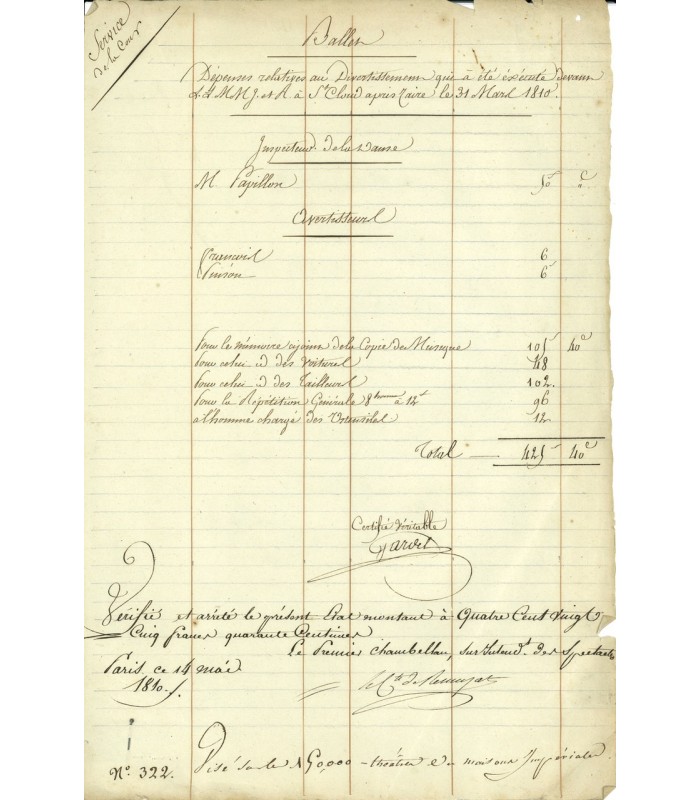 Service
de la Cour
Ballet
Dépenses relatives au Divertissement qui a été éxécuté devant
L.L.M.M.J. et R. à St Cloud après Zaïre le 31 Mars 1810.
Inspecteur de la Danse
M Papillon 50 c
Avertisseurs
6
6
Pour le mémoire cijoint de la Copie de Musique 105 40c
Pour celui id des Voitures 48
Pour celui id des Tailleurs 102.
Pour la Répétition Générale 8 hommes à 12f 96
à l'homme chargé des Ustensiles 12
Total — 425 40c
Certifié Véritable
Gardel
Vérifié et arrêté le présent Etat montant à Quatre Cent vingt
Cinq francs quarante Centimes
Le Premier Chambellan, Surintendt des Spectacles
Paris, ce 14 mai
1810.
le Cte de Remusat
Nº 322.
Visé sur le théâtre maison Impériale